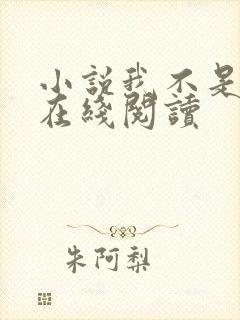 小説我不是
在綫閱讀
朱阿梨